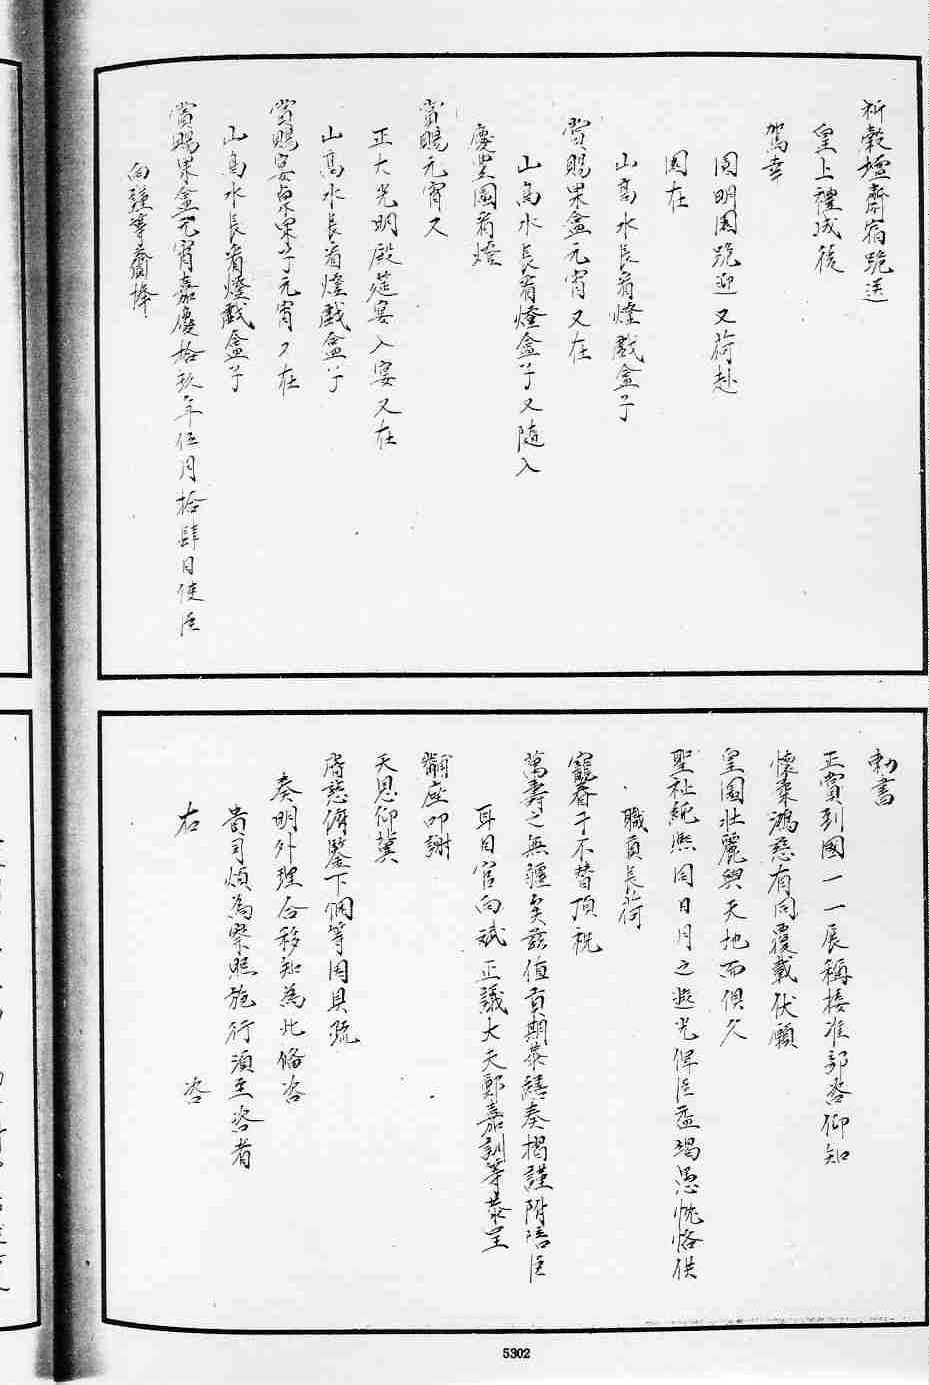 祈穀壇齋宿跪送
皇上禮成後
駕幸
圓明園跪迎又荷赴
園在
山高水長看燈戲盒子
賞賜果盒元宵又在
山高水長看燈盒子又隨入
慶豊園看燈
賞賜元宵又
正大光明殿筵宴入宴又在
山高水長看燈戲盒子
賞賜宴桌果子元宵又在
山高水長看燈戲盒子
賞賜果盒元宵嘉慶拾玖年伍月拾肆日使臣
向 等齎捧
勅書
正賞到國一一辰稱接准部咨仰知
懷柔鴻慈有同覆載伏願
皇圖壯麗與天地而俱久
聖祉紀熙同日月之遐光俾臣益竭愚忱恪供
職貢長荷
寵眷于不替頂祝
萬壽之無疆矣玆值貢期恭繕奏摺謹附陪臣
耳目官向斌正議大夫鄭嘉訓等恭呈
黼座叩謝
天恩仰冀
睿慈俯鑒下悃等因具疏
奏明外理合移知為此備咨
貴司煩為察照施行須至咨者
右 咨
5302